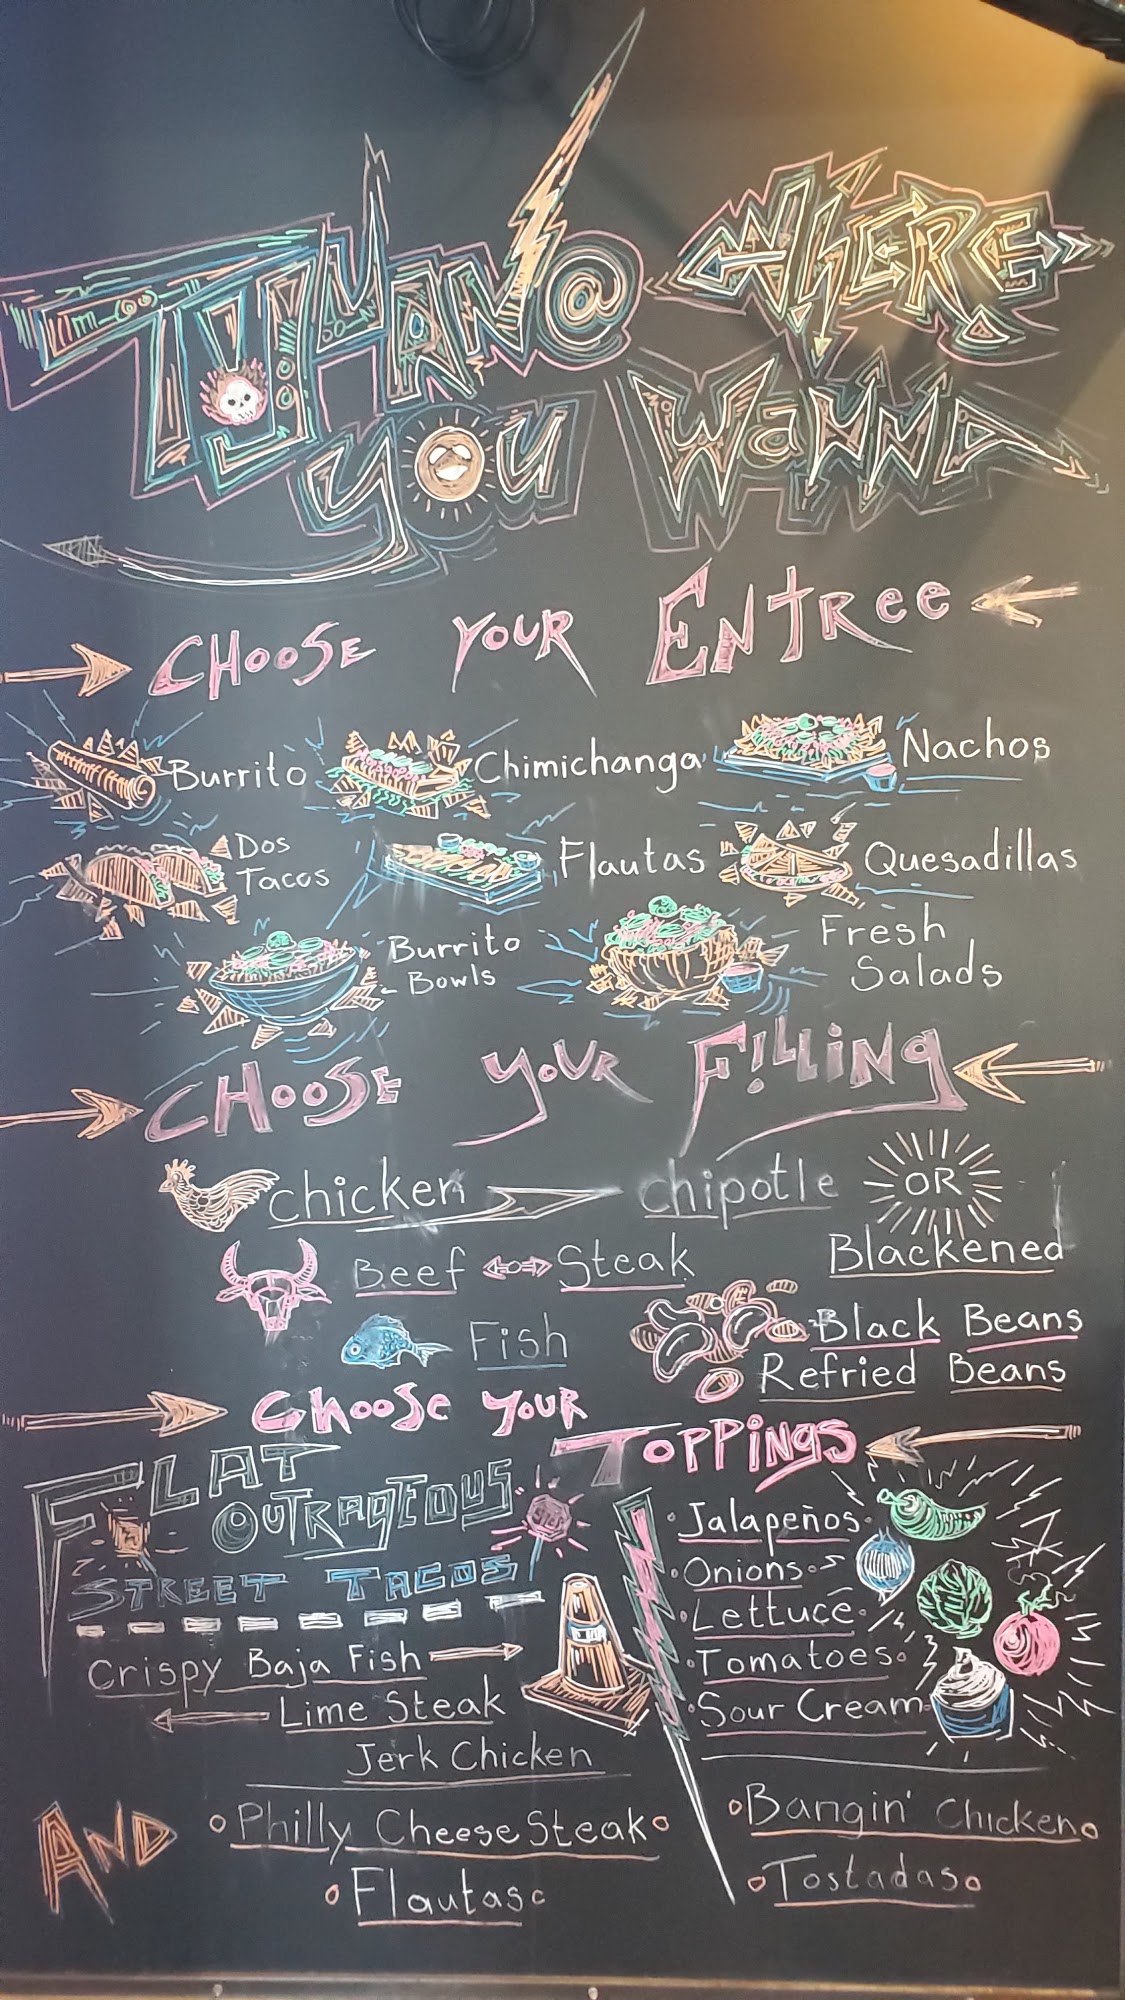 TIJUANA @ WHERE
YOU WANNA
CHOOSE YOUR ENTREE
Burrito Chimichanga Nachos
Dos
Tacos
Flautas Quesadillas
Burrito
Bowls
Fresh
Salads
CHOOSE YOUR FILLING
chicken chipotle OR
Blackened
Beef or Steak
Fish
Black Beans
Refried Beans
Choose YOUR
TOPPINGS
FLAT
OUTRAGEOUS
STREET TACOS
Crispy Baja Fish
Lime Steak
Jerk Chicken
Jalapeños
Onions
Lettuce
Tomatoes
Sour Cream
AND
Philly CheeseSteak
Flautas
Bangin' Chicken
Tostadas